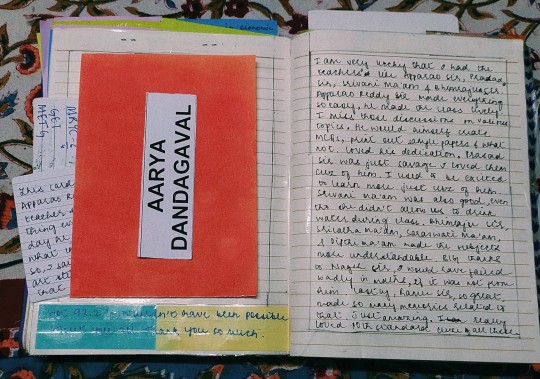 AARYA
DANDAGAVAL
This card
Apparao R
teacher
thing
day he
what
so, I
are
that
not 93.2%. wouldn't have been possible
without you all. Thank you so much.
I am very lucky that I had the
teachers like Apparao sir, Prasad
sir, Srivani ma'am & Bhimaju sir.
Apparao Reddy sir made everything
so easy. He made the class lively
I miss those discussions on various
topics. He would himself create
MCQs, print out sample papers & what
not. Loved his dedication. Prasad
sir was just savage & loved chem
cuz of him. I used to be excited
to learn more just cuz of him.
Srivani ma'am was also good, even
tho she didn't allow us to drink
water during class. Bhimaju sir,
Srilatha ma'am, Saraswati ma'am,
& Dipti ma'am made the subjects
more understandable. Big thanks
to Nagu sir, I would have failed
badly in maths, if it was not for
him. Lastly, Ravi sir, so great
made so many memories related to
that. Just amazing. I really
loved 10th standard cuz of all these